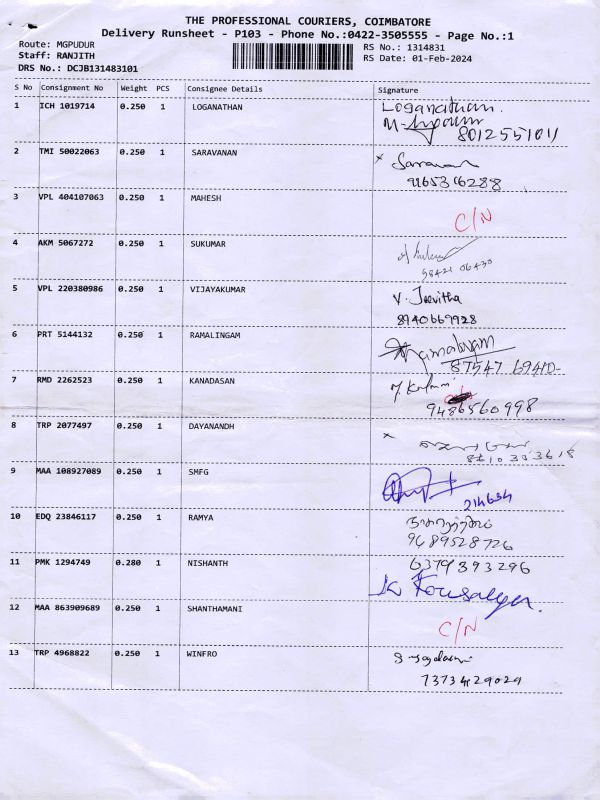 THE PROFESSIONAL COURIERS, COIMBATORE
Delivery Runsheet - P103 - Phone No.:0422-3505555 - Page No.:1
Route: MGPUDUR
Staff: RANJITH
DRS No.: DCJB131483101
RS No.: 1314831
RS Date: 01-Feb-2024
S No Consignment No Weight PCS Consignee Details Signature
1 ICH 1019714 0.250 1 LOGANATHAN Loganathan.
8012551011
2 TMI 50022063 0.250 1 SARAVANAN x Saravanan
9165316288
3 VPL 404107063 0.250 1 MAHESH
C/N
4 AKM 5067272 0.250 1 SUKUMAR
98421 06430
5 VPL 220380986 0.250 1 VIJAYAKUMAR V. Jeevitha
8940669928
6 PRT 5144132 0.250 1 RAMALINGAM Ramalingam
87547 69410-
7 RMD 2262523 0.250 1 KANADASAN
9486560998
8 TRP 2077497 0.250 1 DAYANANDH x
8210333618
9 MAA 108927089 0.250 1 SMFG
214634
10 EDQ 23846117 0.250 1 RAMYA
9489528726
11 PMK 1294749 0.280 1 NISHANTH 6379393296
K Kousalya.
12 MAA 863909689 0.250 1 SHANTHAMANI
C/N
13 TRP 4968822 0.250 1 WINFRO
7373429029